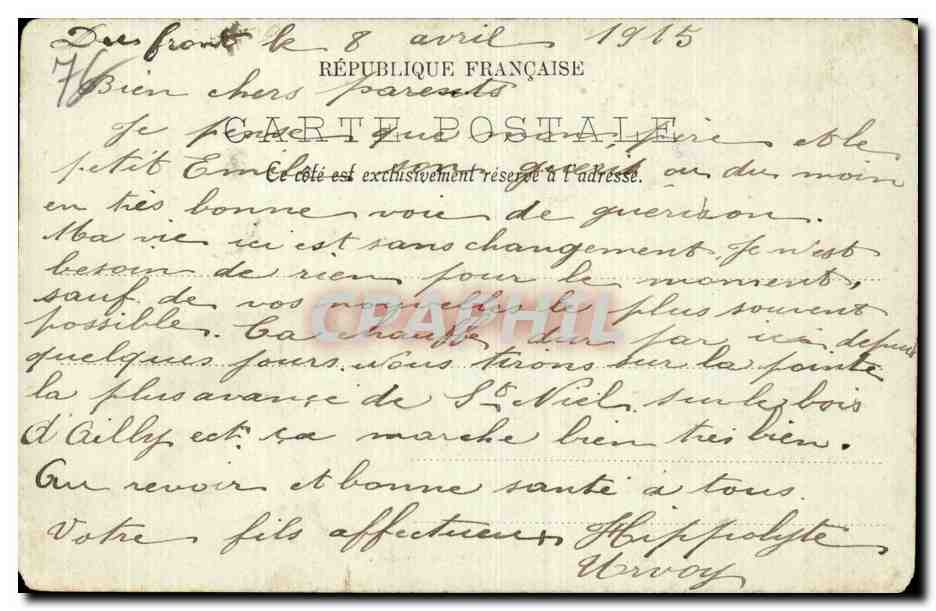 Du front le 8 avril 1915
76
RÉPUBLIQUE FRANÇAISE
Bien chers parents
CARTE POSTALE
Je pense que mon père et le
petit Emile son guerit ou du moin
Ce côté est exclusivement réservé à l'adresse.
en très bonne voie de guerison.
Ma vie ici est sans changement. Je n'est
besoin de rien pour le moment,
sauf de vos nouvelles le plus souvent
CPAPHIL
possible. Ca chauffe dur par ici depuis
quelques jours. Nous tirons sur la pointe
la plus avançe de St Niel sur le bois
d'Ailly ect. ça marche bien très bien.
Au revoir et bonne santé a tous.
Votre fils affectueux Hippolyte
Urvoy